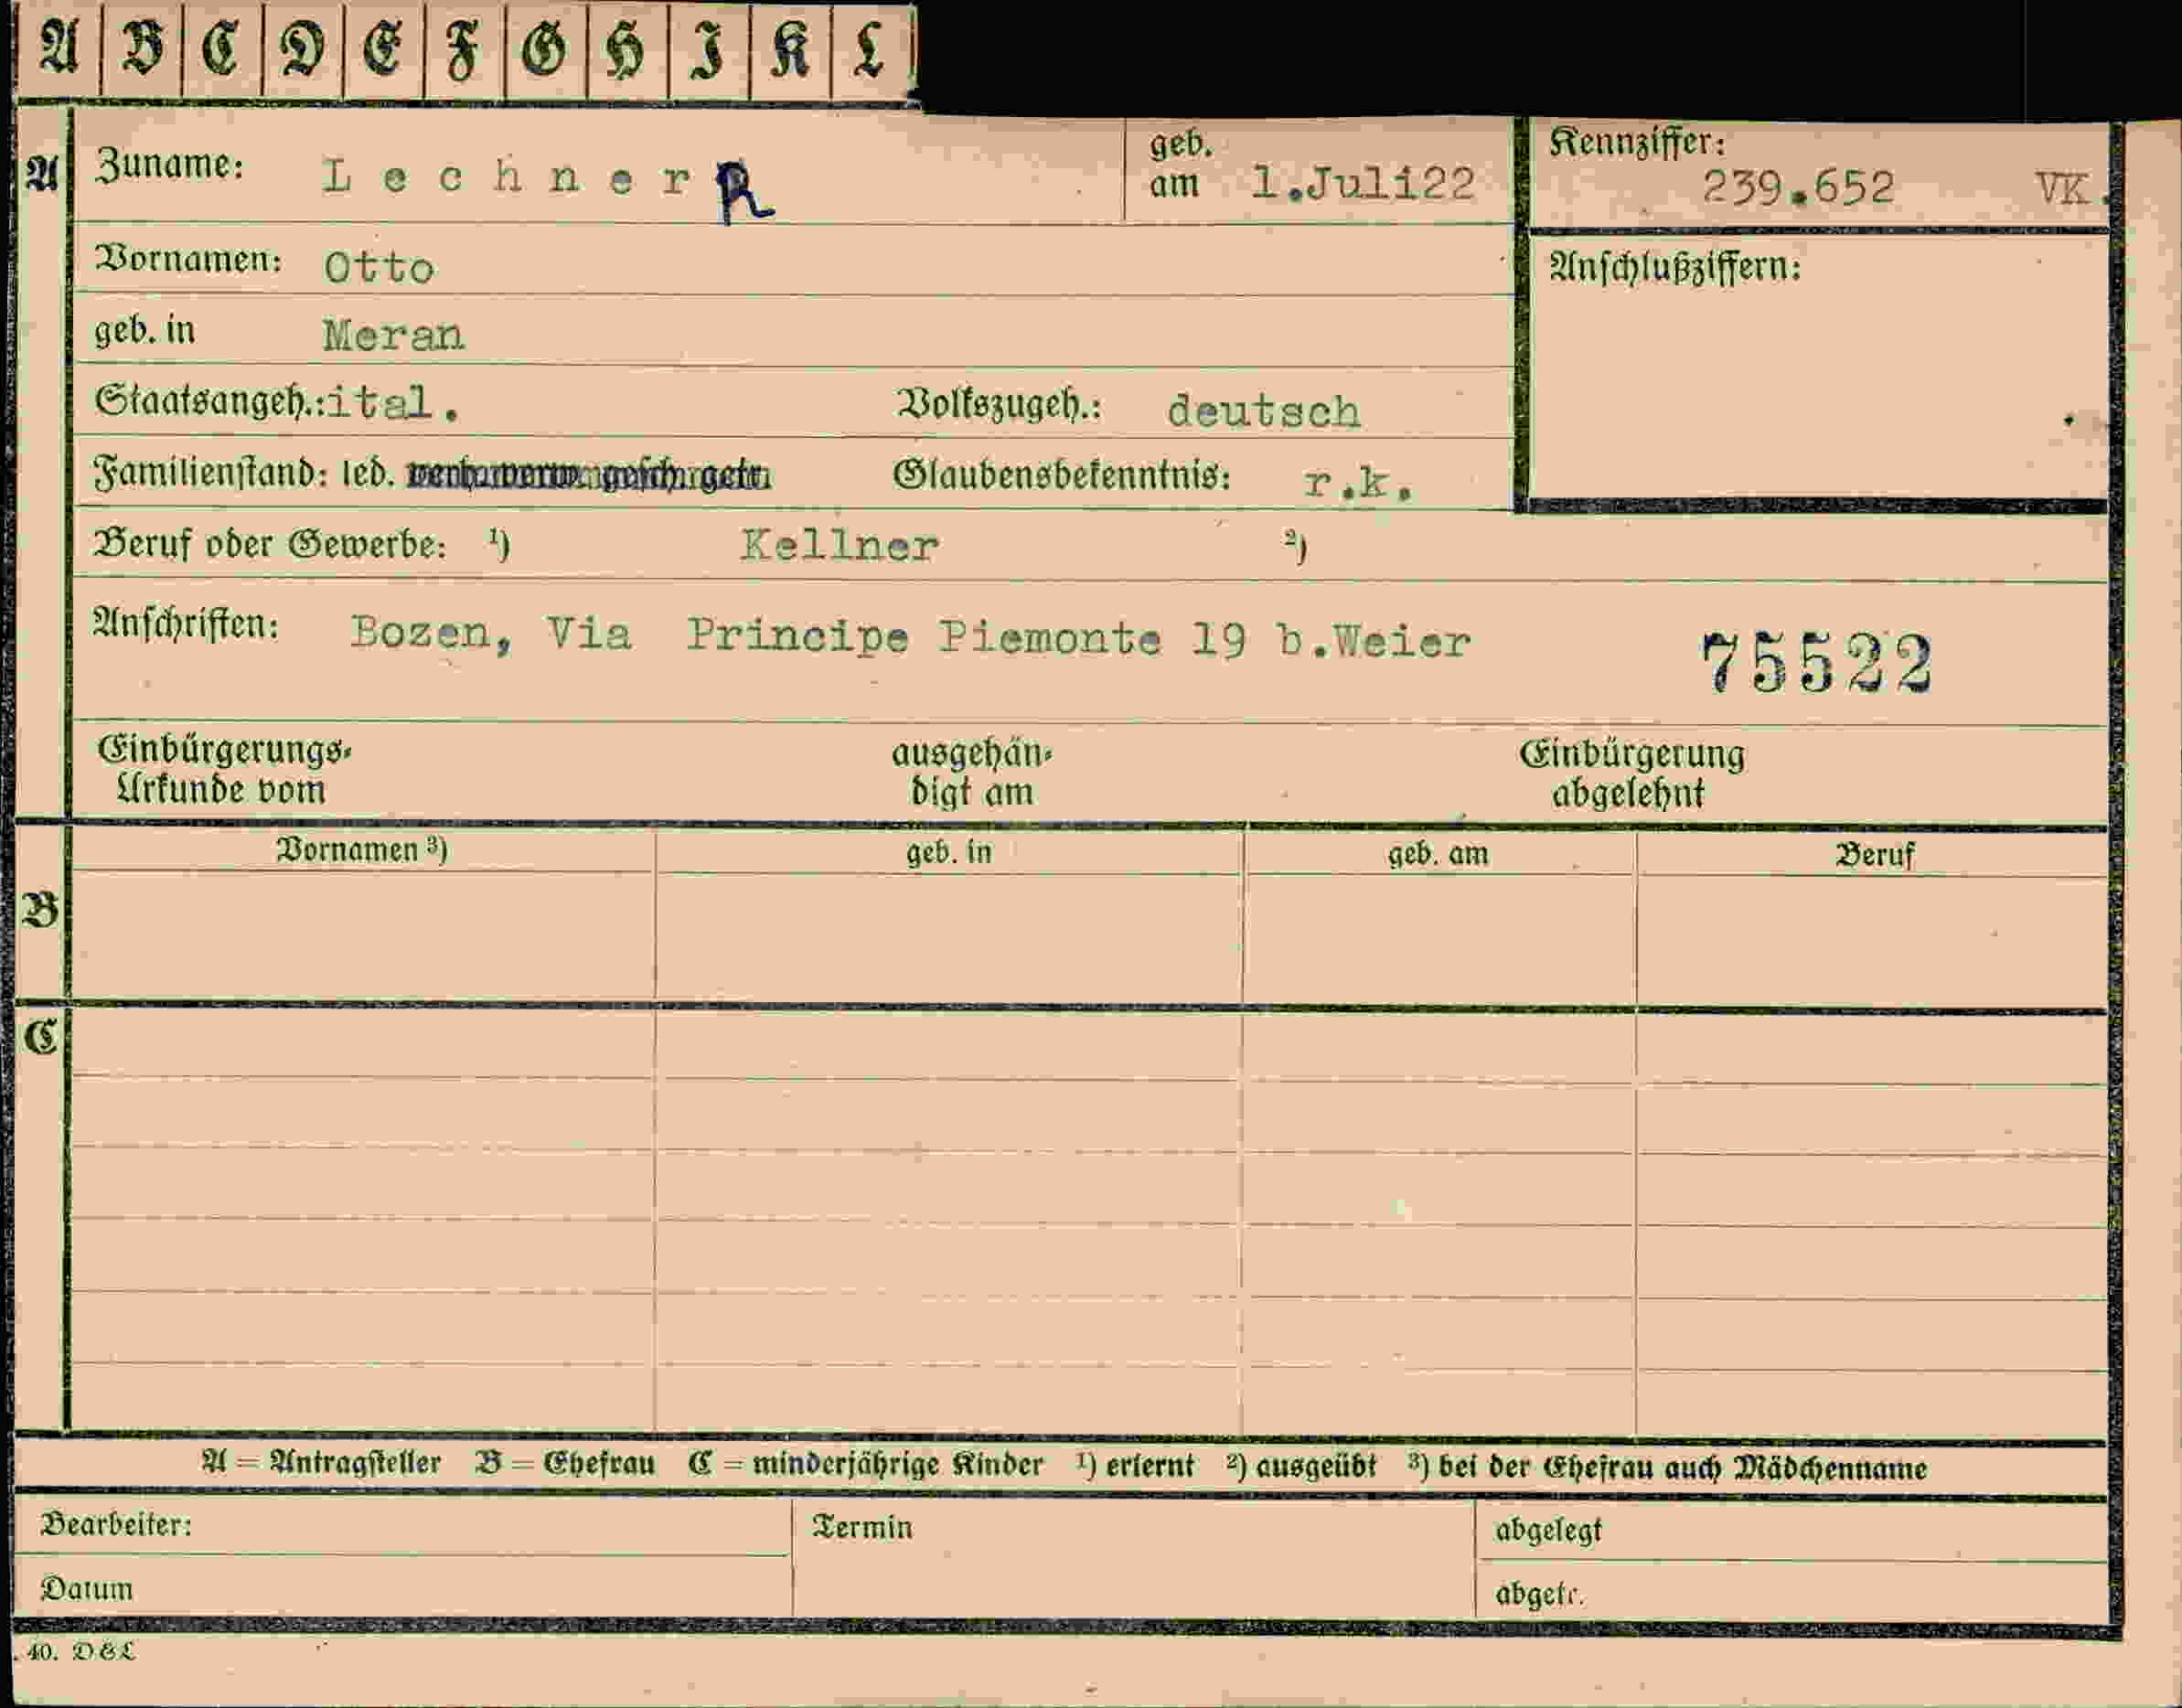 A B C D E F G H I K L
A Zuname: Lechner R geb. am 1.Juli22 Kennziffer: 239.652 VK.
Vornamen: Otto Anschlußziffern:
geb. in Meran
Staatsangeh.: ital. Volkszugeh.: deutsch
Familienstand: led. verh. verw. gesch. getr. Glaubensbekenntnis: r.k.
Beruf oder Gewerbe: ¹) Kellner ²)
Anschriften: Bozen, Via Principe Piemonte 19 b.Weier 75522
Einbürgerungs- ausgehän- Einbürgerung
Urkunde vom digt am abgelehnt
Vornamen ³) geb. in geb. am Beruf
B
C
A = Antragsteller B = Ehefrau C = minderjährige Kinder ¹) erlernt ²) ausgeübt ³) bei der Ehefrau auch Mädchenname
Bearbeiter: Termin abgelegt
Datum abgetr.
40. D&L